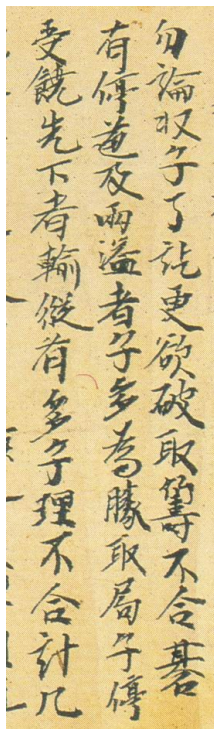 勿論収子了訖更欲破取籌不合碁
有停道及両溢者子多為勝取局子停
受饒先下者輸縦有多子理不合計凡